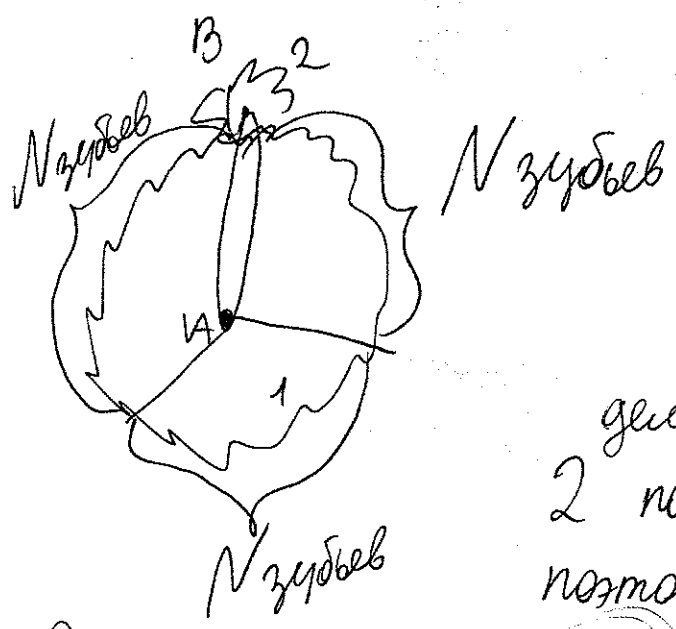 B
2
N зубьев
N зубьев
A
1
2
N зубьев